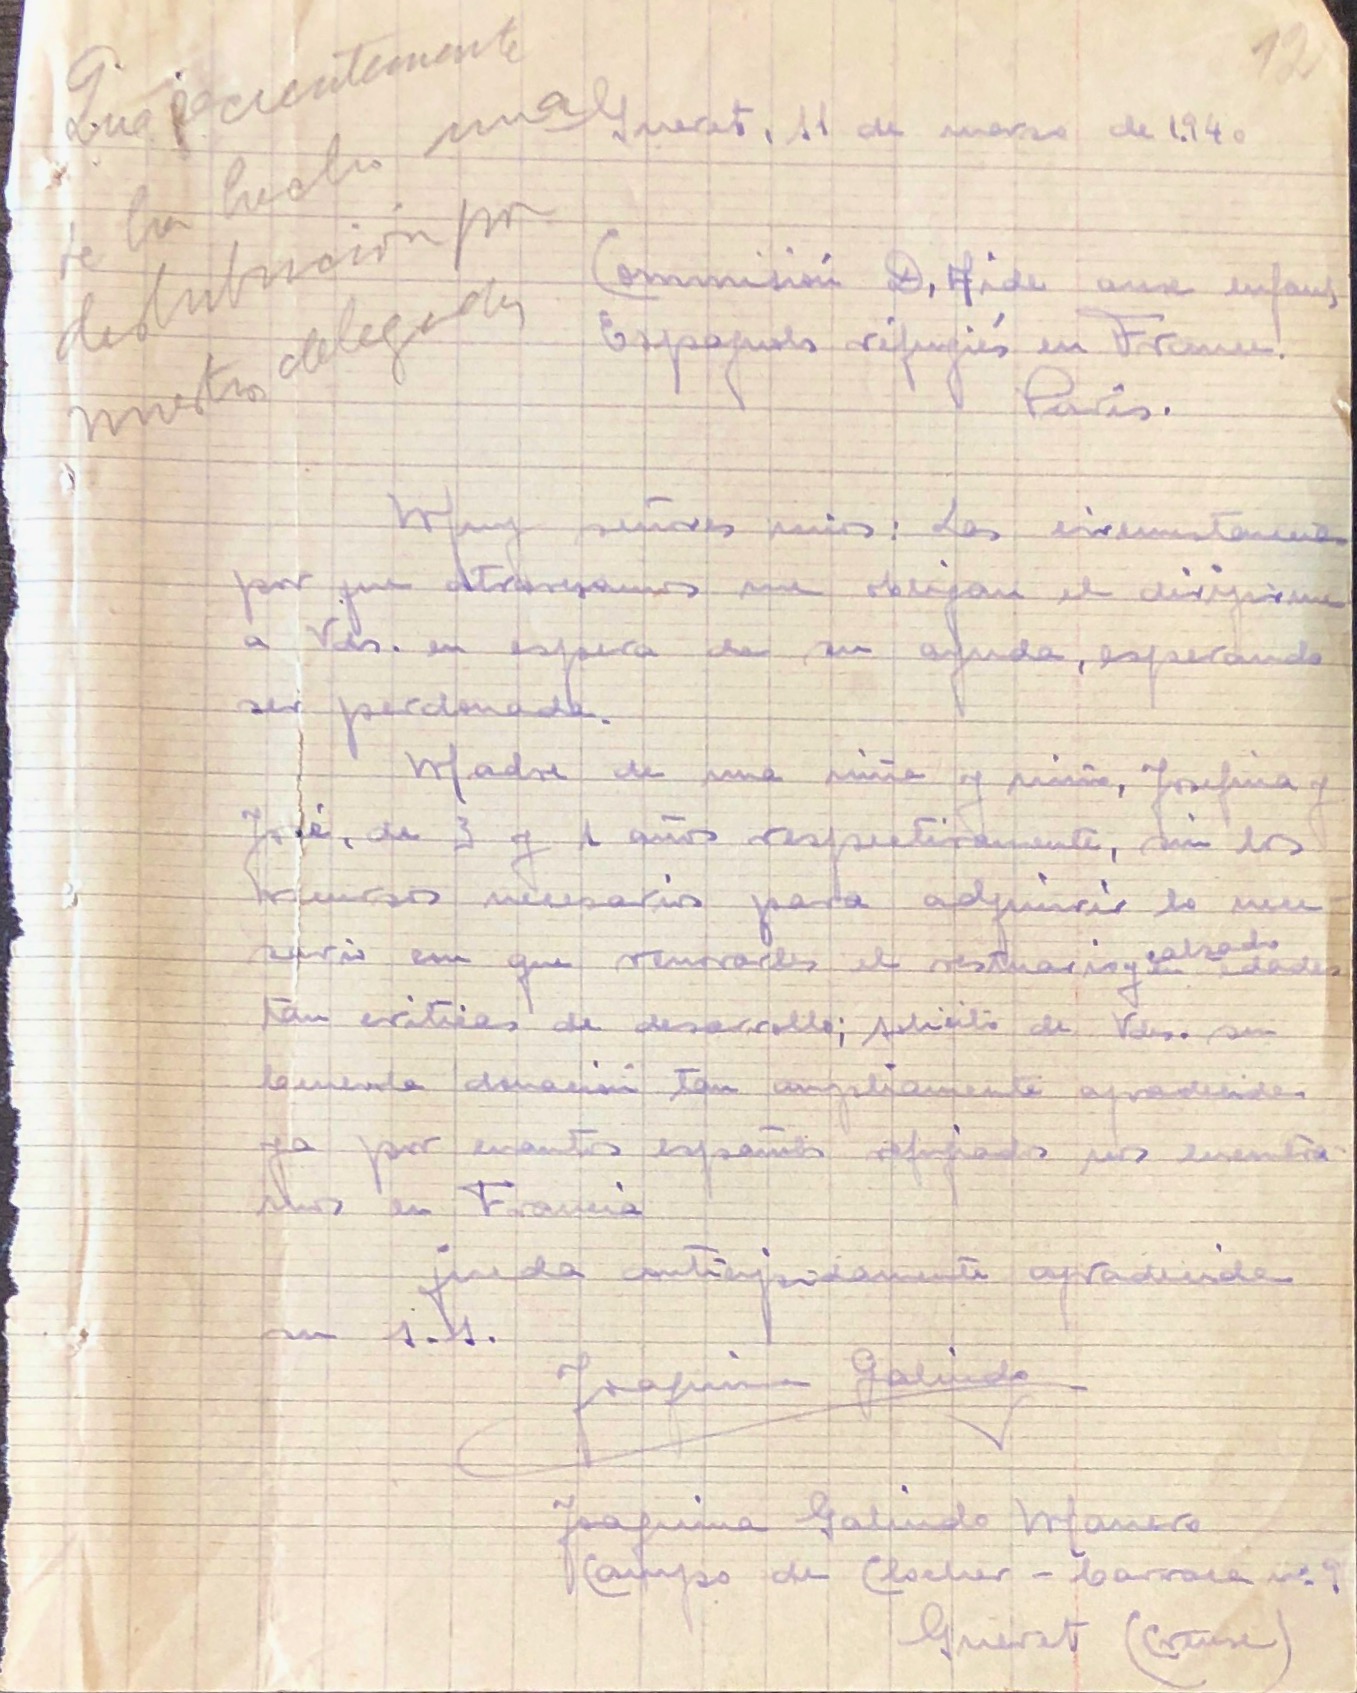 12
Que recientemente
se ha hecho una
distribución por
nuestros delegados
Gueret, 11 de marzo de 1.940
Commisión D, Aide aux enfants
Espagnols réfugiés en France.
París.
Muy señores mios: Las circunstancias
por que atravesamos me obligan el dirigirme
a Vds. en espera de su ayuda, esperando
ser perdonada.
Madre de una niña y niño, Josefina y
José, de 3 y 1 años respectivamente, sin los
recursos necesarios para adquirir lo nece-
sario con que renovarles el vestuario y calzado en edades
tan criticas de desarrollo; solicito de Vds. su
benevola donación tan ampliamente agradecida
ya por cuantos españoles refugiados nos encontra-
mos en Francia
queda anticipadamente agradecida
su s.s.
Joaquina Galindo
Joaquina Galindo Manero
Campo de Clocher - barraca nº 9
Gueret (Creuse)